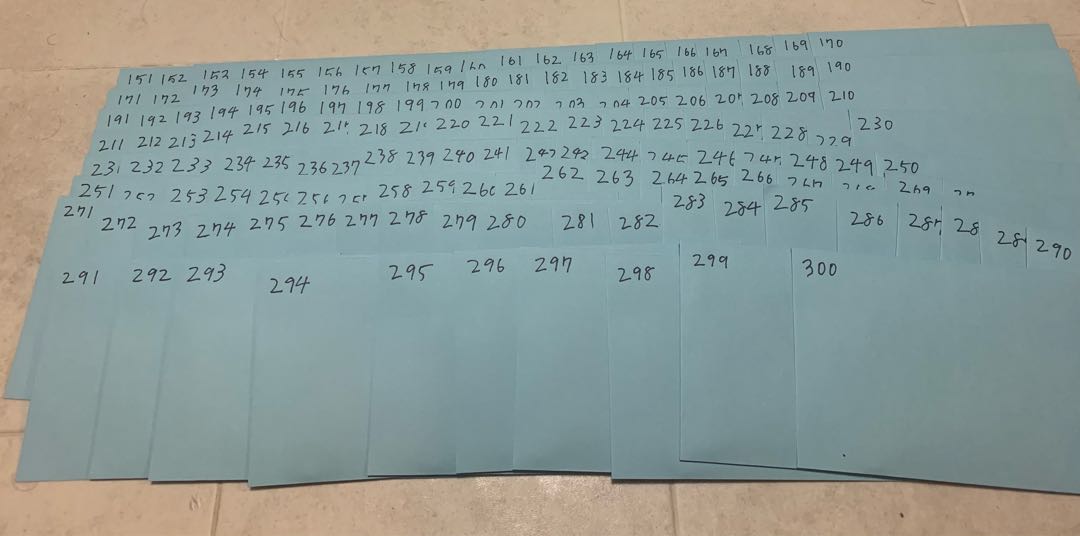 151 152 153 154 155 156 157 158 159 160 161 162 163 164 165 166 167 168 169 170
171 172 173 174 175 176 177 178 179 180 181 182 183 184 185 186 187 188 189 190
191 192 193 194 195 196 197 198 199 200 201 202 203 204 205 206 207 208 209 210
211 212 213 214 215 216 217 218 219 220 221 222 223 224 225 226 227 228 229 230
231 232 233 234 235 236 237 238 239 240 241 242 242 244 245 246 247 248 249 250
251 252 253 254 255 256 257 258 259 260 261 262 263 264 265 266 267 269
271 272 273 274 275 276 277 278 279 280 281 282 283 284 285 286 287 28 28 290
291 292 293 294 295 296 297 298 299 300